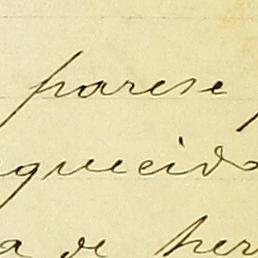 parese
quecido
a de her